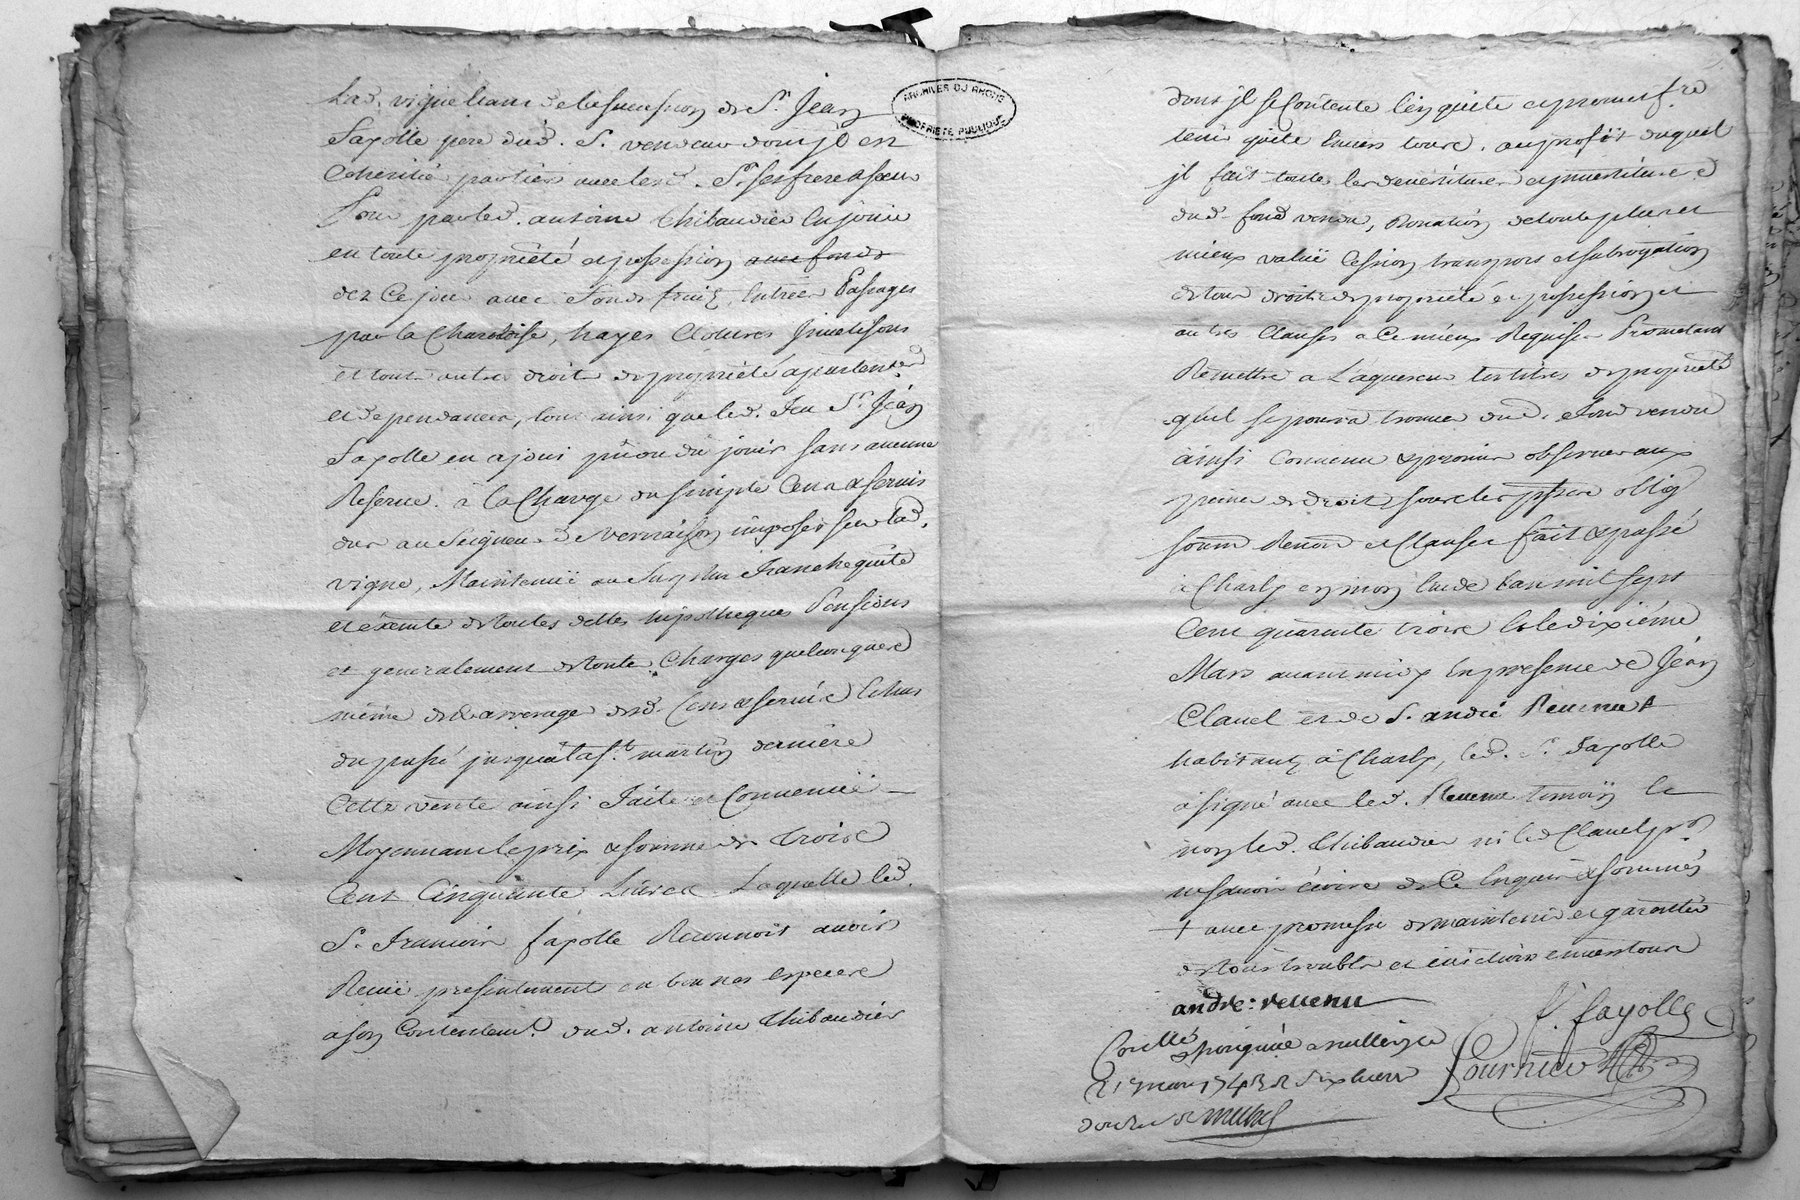 Lad. vigne
de la succession de Sr. Jean
fayolle pere dud. S. vendeur dont jl est
Coheritié partien avec lesd. Srs. ses frere & sœur
Pour par led. antoine thibaudier En jouir
en toute proprieté et possession avec fonds
dez Ce jour avec fonds fruitz, Entrées Passages
par la Charoloise, hayes Clotures
et tout autre droits de proprieté apartences
et dependances, tout ainsi que led. feu Sr. Jean
fayolle en a joui pû ou dû jouir sans aucune
Reserve. à la Charge du simple Cens & servis
dus au Seigneur de Vernaison imposés sur lad.
vigne, Maintenuë au Surplus franche quitte
et exemte de toutes dettes hipotheques Pensions
et generalement de toute Charges quelconques
même des arrerage dud. Cens & servis Echus
du passé jusqu'a la st. martin derniere
Cette vente ainsi faite et Convenuë
Moyennant le prix & somme de trois
Cent Cinquante Livres Laquelle led.
S. francois fayolle Reconnoit avoir
Receu presentement en bonnes especes
a son Contentemt. dud. antoine thibaudier
ARCHIVES DU RHONE
PROPRIETE PUBLIQUE
dont jl se Contente l'en quitte et promet fre
tenir quitte Envers tous. au profit duquel
jl fait toutes les devestitures et jnvestitures
dud. fond vendu, Donation de toute plus et
mieux valuë Cession transport et subrogation
de tous droits de proprieté et possession et
autres Clauses a Ce mieux Requises Prometant
Remettre a L'aquereur les titres de proprieté
quil se poura trouver dud. fond vendu
ainsi Convenu & promis observer aux
peine de droit sous les oblig
soum Renon et Clauses fait & passé
à Charly en mon Etude L'an mil sept
Cent quarante trois Et le dixiéme
Mars avant midy En presence de Jean
Clavel et de S. andré Revenu
habitants à Charly, led. Sr. fayolle
a signé avec led. Revenu temoin Ce
non led. thibaudier ni led Clavel pr.
ne sçavoir écrire de Ce Enquis & sommés
+ avec promesse de maintenir et garantir
de tous troubles et evictions envers tous
andre: revenu
f. fayolle
Collé
a millery ce
21 mars 1743 R six livres
fournier